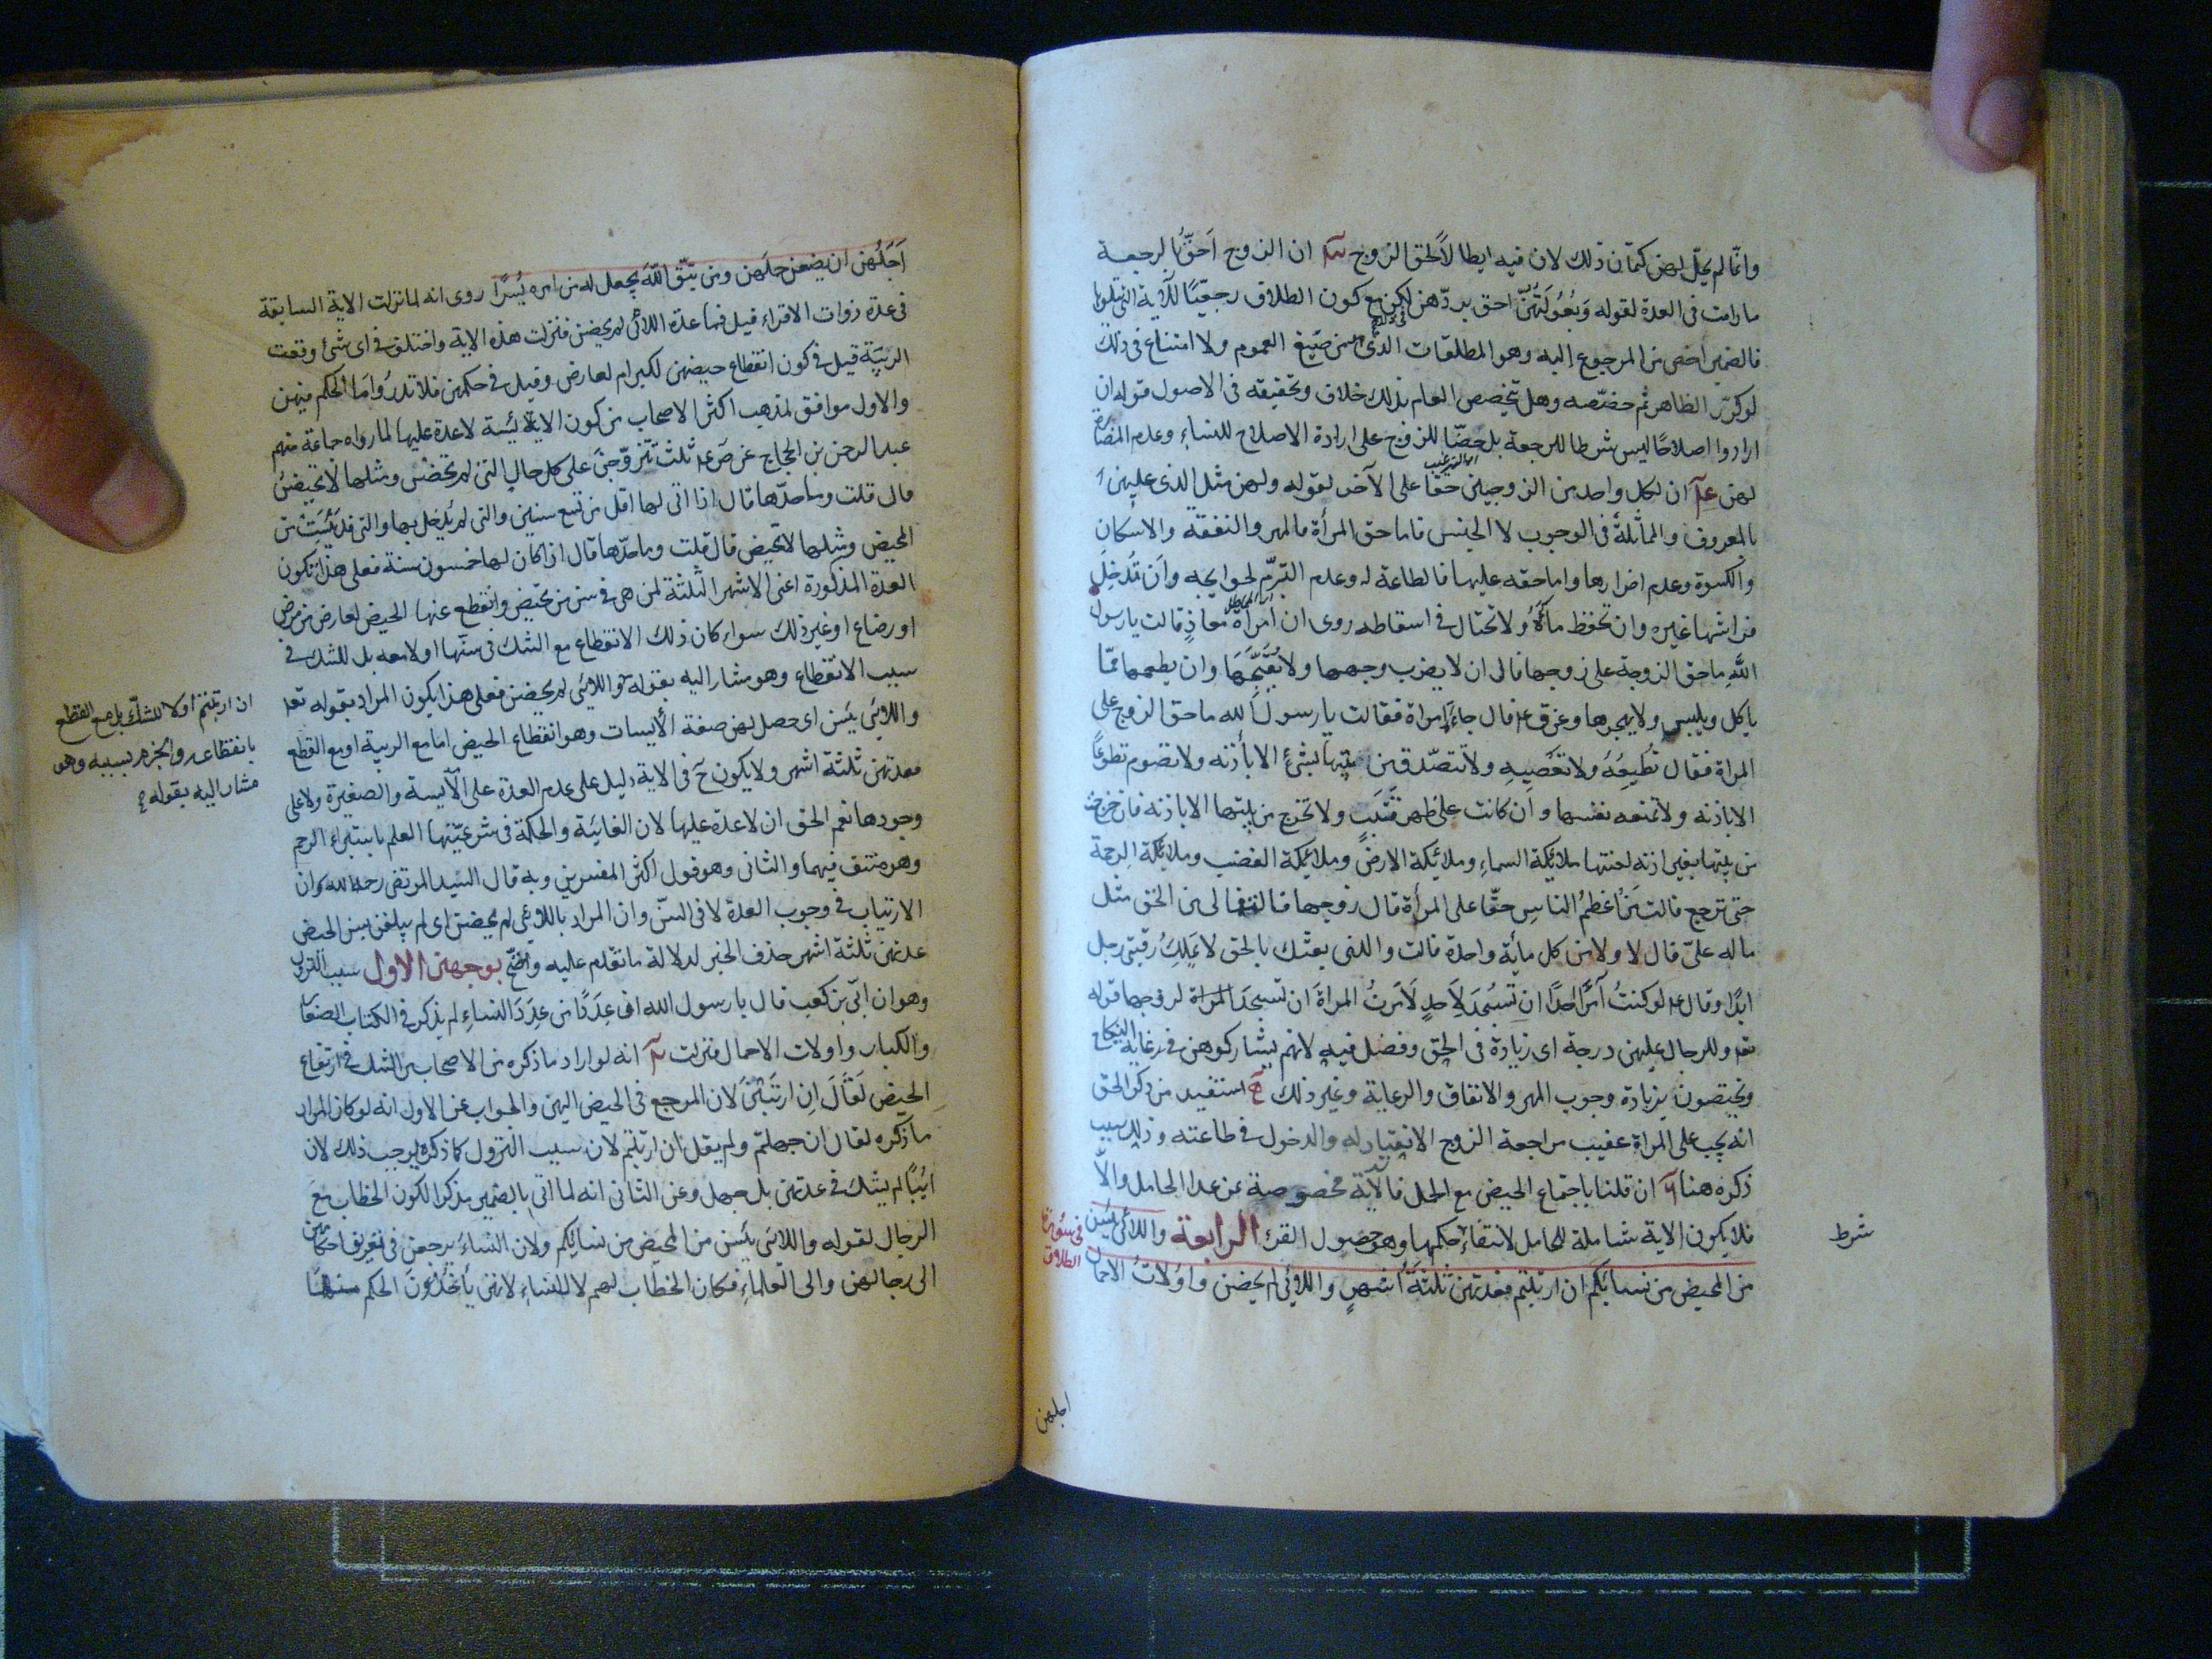 وانّما لم يحلّ لهن كتمان ذلك لان فيه ابطالاً لحق الزوج ان الزوج اَحقّ بالرجعة
مادامت فى العدة لقوله وَبُعُولَتُهُنَّ احق بردّهن لكن مع كون الطلاق رجعيّا للآية التى تتلوها
فالضمير اخص من المرجوع اليه وهو المطلقات الذى من صيغ العموم ولا امتناع فى ذلك
لو كرّر الظاهر ثم خصّصه وهل تخصص العام بذلك خلاف وتحقيقه فى الاصول قوله ان
ارادوا اصلاحًا ليس شرطا للرجعة بل حضّا للزوج على ارادة الاصلاح للنساء وعدم المضارة
لهن ان لكل واحد من الزوجين حقّا على الآخر لقوله ولهن مثل الذى عليهن
بالمعروف والمماثلة فى الوجوب لا الجنس فاما حق المرأة فالمهر والنفقة والاسكان
والكسوة وعدم اضرارها واما حقه عليها فالطاعة له وعدم التبرّم لحوايجه وان تُدخِلَ
فراشها غيره وان تحفظ ماءَهُ ولا تحتال فى اسقاطه روى ان امرأة معاذٍ قالت يا رسول
اللّه ما حق الزوجة على زوجها قال ان لا يضرب وجهها ولا يُقَبِّحَهَا وان يطعمها ممّا
ياكل ويلبس ولا يهجرها وعن ق ع قال جاءَت امراة فقالت يا رسول الله ما حق الزوج على
المراة فقال تُطيعُهُ ولا تعصيهِ ولا تتصّدق من بيتها بشئ الا بأذنه ولا تصوم تطوعًا
الا باذنه ولا تمنعه نفسها وان كانت على ظهر قَتَبٍ ولا تخرج من بيتها الا باذنه فان خرجت
من بيتها بغير اذنه لعنتها ملائكة السماء وملائكة الارض وملائكة الغضب وملائكة الرحمة
حتى ترجع قالت مَن اَعظمُ الناسِ حقّا على المرأة قال زوجها قالت فما لى من الحق مثل
ما له علىّ قال لا ولا من كل مأية واحدة قالت والذى بعثك بالحق لا يملِكُ رقبتى رجل
ابدًا وقال ع لو كنتُ آمُرُ اَحدًا ان يَسْجُدَ لاَحدٍ لاَمرتُ المراةَ ان تسجدَ لزوجها قوله
تع وللرجال عليهن درجة اى زيادة فى الحق وفضل فيه لانهم يشاركوهن فى غاية النكاح
ويختصون بزيادة وجوب المهر والانفاق والرعاية وغير ذلك استفيد من ذكر الحق
انه يجب على المراة عقيب مراجعة الزوج الانقياد له والدخول فى طاعته وذلك سبب
ذكره هنا ان قلنا باجتماع الحيض مع الحمل فالآية مخصوصة بمن عدا الحامل والاّ
فلا يكون الاية شاملة للحامل لانتفاء حكمها وهو حصول القرء الرابعة واللائى يئسن
من المحيض من نسائكم ان ارتبتم فعدتهن ثلثةُ اَشهرٍ واللائى لم يحضن واُولاتُ الاحمال
فى سورة
الطلاق
شرط
اجلهن
اَجَلُهن ان يضعن حملهن ومن يتّق اللّه يجعل له من امره يُسرًا روى انه لما نزلت الاية السابقة
فى عدة ذوات الاقراء قيل فما عدة اللائى لم يحضن فنزلت هذه الاية واختلف فى اى شئ وقعت
الريبَة قيل فى كون انقطاع حيضهن لكبر ام لعارض وقيل فى حكمهن فلا تدرُوا ما الحكم فيهن
والاول موافق لمذهب اكثر الاصحاب من كون الايسة لا عدة عليها لما رواه جماعة منهم
عبد الرحمن بن الحجاج عن ص ع ثلث تتزوّجنَ على كل حالٍ التى لم تحضْ ومثلها لا تحيضُ
قال قلت وما حدّها قال اذا اتى لها اقل من تسع سنين والتى لم يُدخل بها والتى قد يَئسَتْ من
المحيض ومثلها لا تحيض قال قلت وما حدّها قال اذا كان لها خمسون سنة فعلى هذا تكون
العدة المذكورة اعنى الاشهر الثلثة لمن هى فى سن من تحيض وانقطع عنها الحيض لعارض من مرضٍ
او رضاع او غير ذلك سواء كان ذلك الانقطاع مع الشك فى سنّها اولا معه بل للشك فى
سبب الانقطاع وهو مشار اليه بقوله واللائى لم يحضن فعلى هذا يكون المراد بقوله تع
واللائى يئسن اى حصل لهن صفة الآيسات وهو انقطاع الحيض اما مع الريبة او مع القطع
فعدتهن ثلثة اشهر ولا يكون ح فى الاية دليل على عدم العدة على الآيسة والصغيرة ولا على
وجودها نعم الحق ان لا عدة عليها لان الغاية والحكمة فى شرعيّتها العلم باستبراء الرحم
وهو منتف فيهما والثانى وهو قول اكثر المفسرين وبه قال السّيد المرتضى رحمه الله وان
الارتياب فى وجوب العدة لا فى السنّ وان المراد باللائى لم يحضن اى لم يبلغن سن الحيض
عدتهن ثلثة اشهر حذف الخبر لدلالة ما تقدم عليه واحتجّ بوجهين الاول سبب النزول
وهو ان اُبىّ بن كعب قال يا رسول الله ان عِدَدًا من عِدَدِ النساءِ لم يذكر فى الكتاب الصغار
والكبار واولات الاحمال فنزلت انه لو اراد ما ذكره من الاصحاب من الشك فى ارتفاع
الحيض لَقالَ اِن ارتَبْتُنَّ لان المرجع فى الحيض اليهن والجواب عن الاول انه لو كان المراد
ما ذكره لقال ان جهلتم ولم يقل ان ارتبتم لان سبب النزول كما ذكره يوجب ذلك لان
اُبيًّا لم يشك فى عدتهن بل جهل وعن الثانى انه لما اتى بالضمير مذكرا لكون الخطاب مع
الرجال لقوله واللائى يئسن من المحيض من نسائكم ولان النساءَ يرجعن فى تعريف احكامهن
الى رجالهن والى العلماءِ فكان الخطاب لهم لا للنساءِ لانهن يأخُذْنَ الحكم
ان ارتبتم اولا للشكّ بل مع القطع
بانقطاعه والجزم بسببه وهو
مشار اليه بقوله